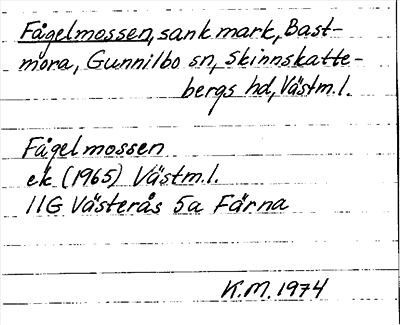 Fågelmossen, sank mark, Bast-
mora, Gunnilbo sn, Skinnskatte-
bergs hd, Västm.l.
Fågelmossen
ek (1965) Västm.l.
11G Västerås 5a Färna
K.M. 1974